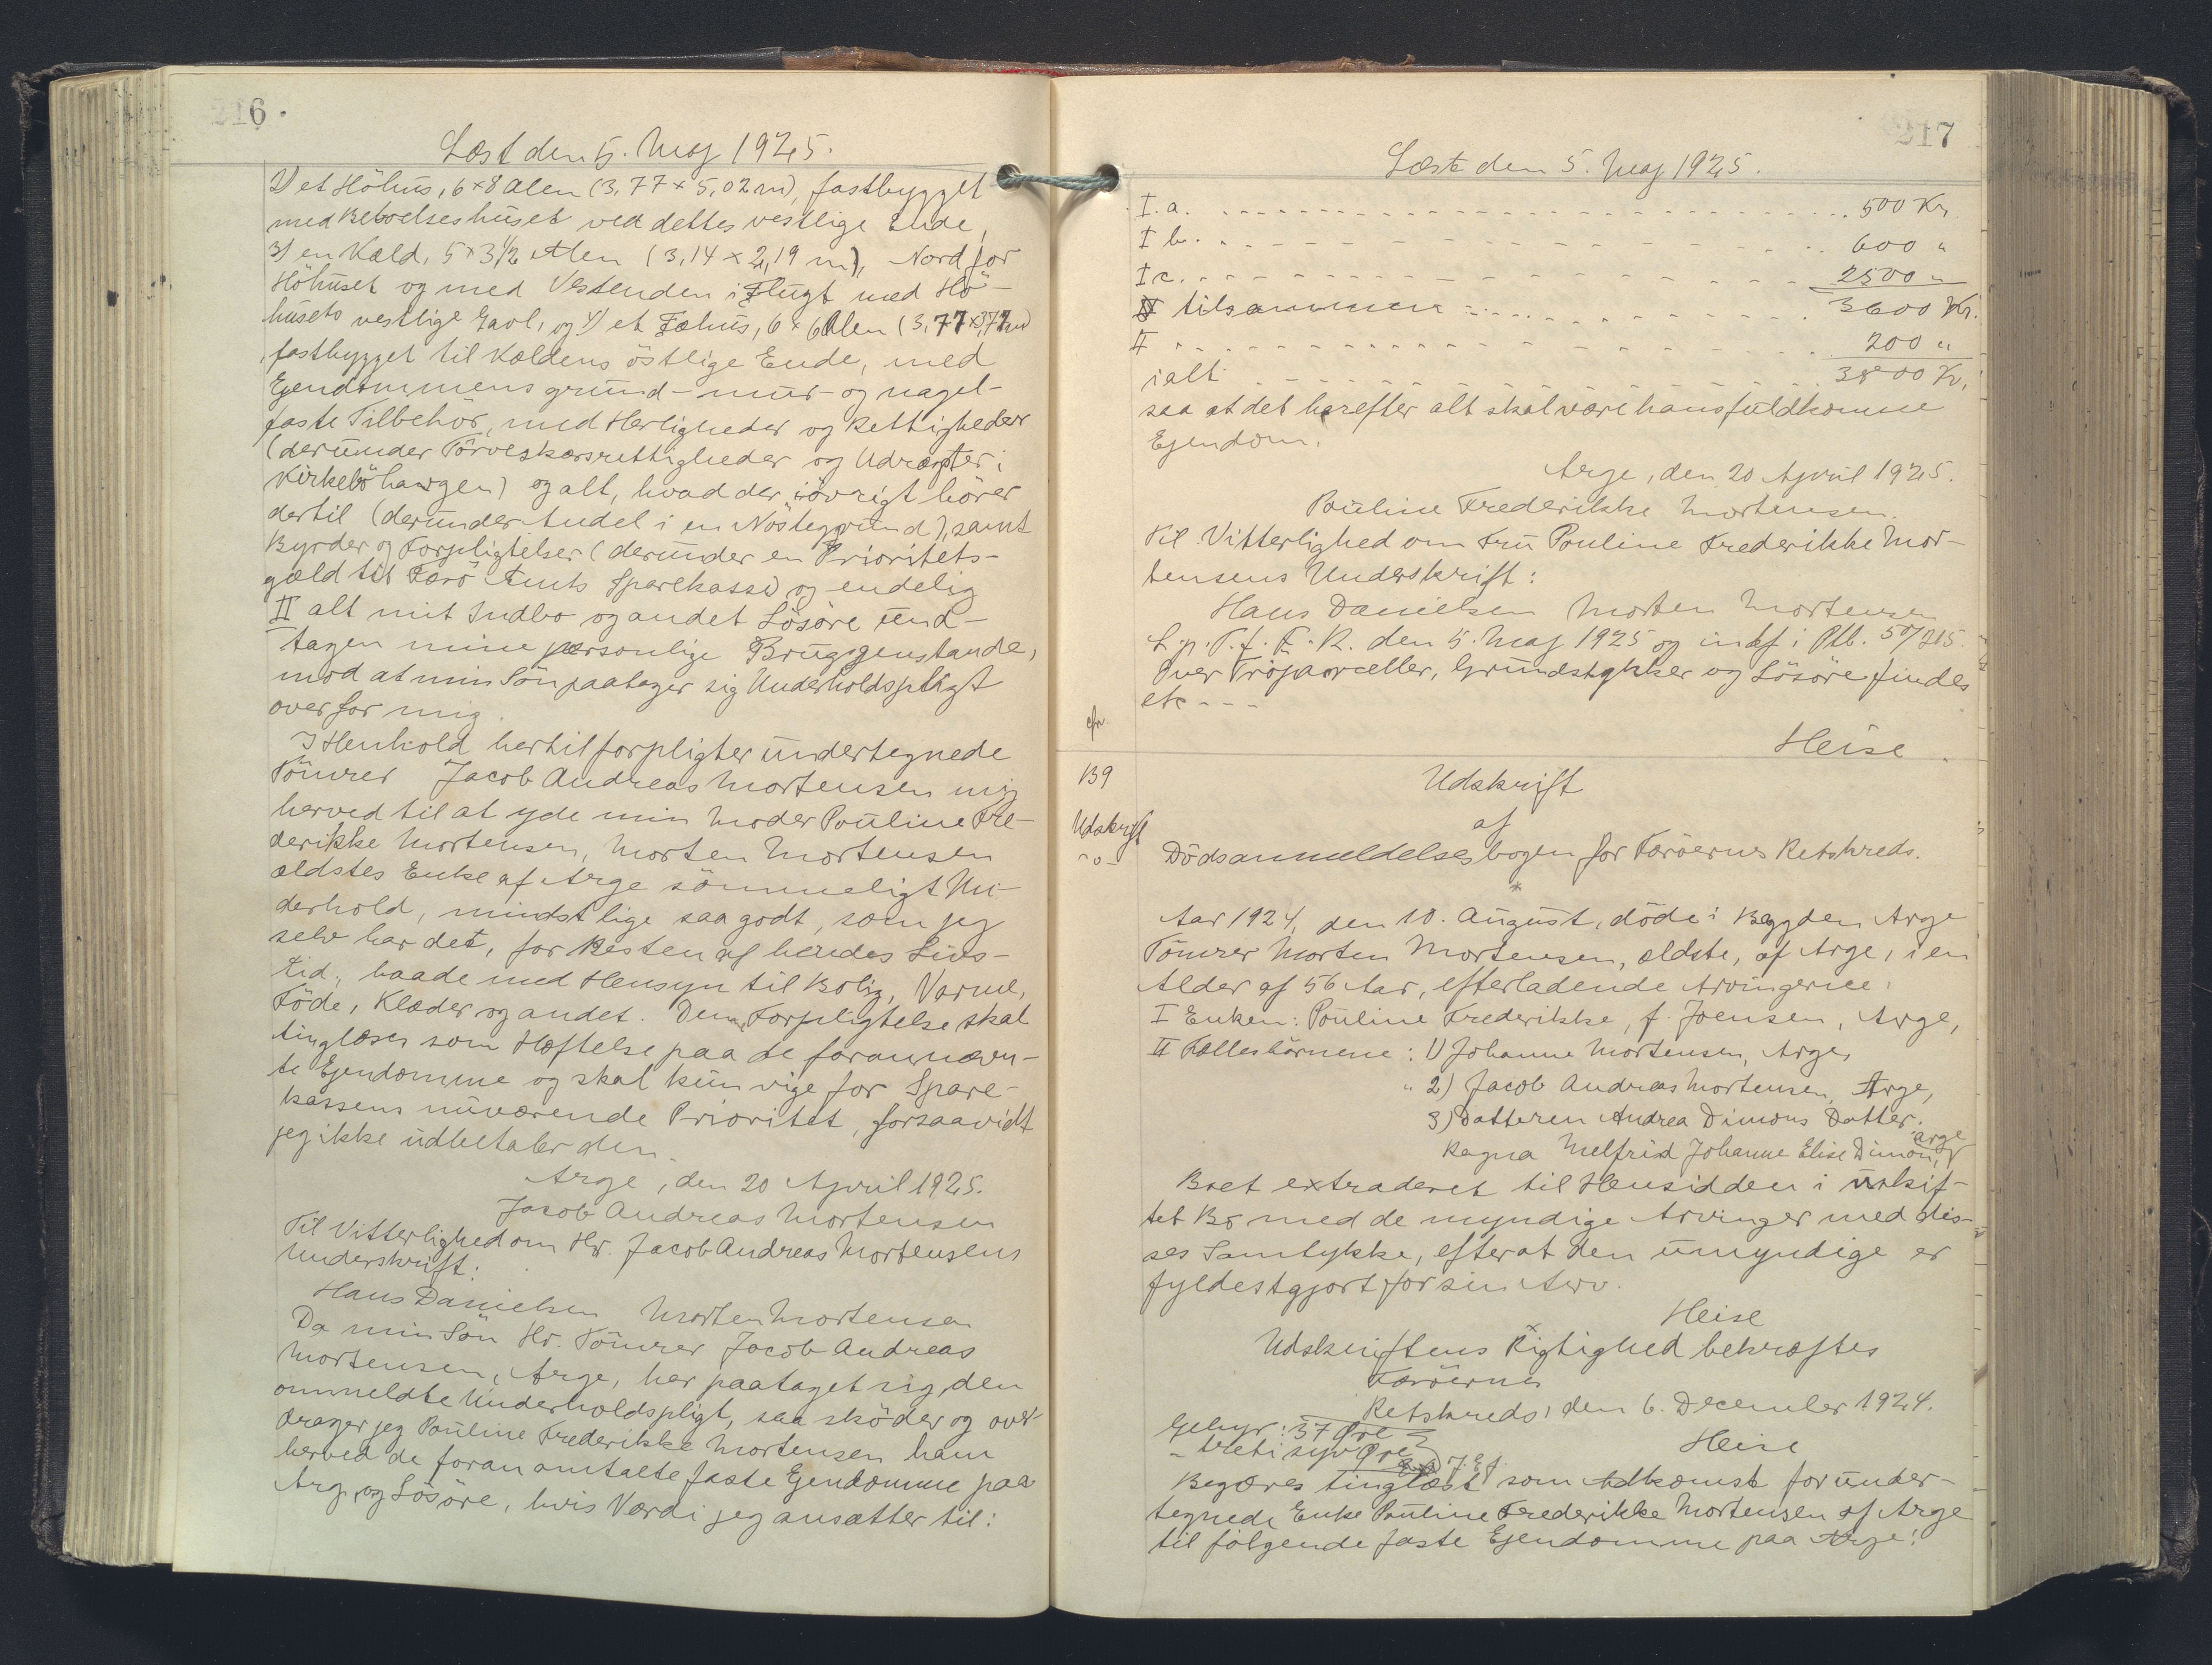 216
Læst den 5. Maj 1925.
2) et Höhus, 6 × 8 Alen (3,77 × 5,02 m), fastbygget
med Beboelseshuset ved dettes vestlige Ende,
3) en Kæld, 5 × 3 1/2 Alen (3,14 × 2,19 m), Nord for
Höhuset og med Vestenden i Flugt med Hö-
husets vestlige Gavl, og 4) et Fæhus, 6 × 6 Alen (3,77 × 3,77 m)
fastbygget til Kældens östlige Ende, med
Ejendommens grund- mur- og nagel-
faste Tilbehör, med Herligheder og Rettigheder
(derunder Törveskærsrettigheder og Udrapter i
Kirkeböhaugen) og alt, hvad der iövrigt hörer
dertil (derunder Andel i en Nöstegrund), samt
Byrder og Forpligtelser (derunder en Prioritets-
gæld til Færö Amts Sparekasse) og endelig
II alt mit Indbo og andet Lösöre und-
tagen mine personlige Brugsgenstande,
mod at min Sön paatager sig Underholdspligt
overfor mig.
I Henhold hertil forpligter undertegnede
Tömrer Jacob Andreas Mortensen mig
herved til at yde min Moder Pouline Fre-
derikke Mortensen, Morten Mortensen
ældstes Enke af Arge sömmeligt Un-
derhold, mindst lige saa godt, som jeg
selv har det, for Resten af hendes Livs-
tid, baade med Hensyn til Bolig, Varme,
Föde, Klæder og andet. Denne Forpligtelse skal
tinglæses som Hæftelse paa de forannævn-
te Ejendomme og skal kun vige for Spare-
kassens nuværende Prioritet, forsaavidt
jeg ikke udbetaler den.
Arge, den 20 April 1925.
Jacob Andreas Mortensen
Til Vitterlighed om Hr. Jacob Andreas Mortensens
Underskrift:
Hans Danielsen Morten Mortensen
Da min Sön Hr. Tömrer Jacob Andreas
Mortensen, Arge, har paataget sig den
ommeldte Underholdspligt, saa sköder og over-
drager jeg Pouline Frederikke Mortensen ham
herved de foran omtalte faste Ejendomme paa
Arge og Lösöre, hvis Værdi jeg ansætter til:
217
Læst den 5. Maj 1925.
I. a. 500 Kr.
I b. 600 "
I c. 2500 "
tilsammen 3600 Kr.
II 200 "
ialt 3800 Kr.
saa at det herefter alt skal være hans fuldkomne
Ejendom.
Arge, den 20 April 1925.
Pouline Frederikke Mortensen.
Til Vitterlighed om Fru Pouline Frederikke Mor-
tensens Underskrift:
Hans Danielsen Morten Mortensen
L. p. T. f. F. R. den 5. Maj 1925 og indf i Ptb. 50/215.
Over Tröparceller, Grundstykker og Lösöre findes
etc - - -
cfr.
Heise
139
Udskrift
Udskrift
af
- o -
Dödsanmeldelsesbogen for Færöernes Retskreds.
*
Aar 1924, den 10. August, döde i Bygden Arge
Tömrer Morten Mortensen, ældste, af Arge, i en
Alder af 56 Aar, efterladende Arvingerne:
I Enken: Pouline Frederikke, f. Joensen, Arge,
II Fællesbörnene: 1) Johanne Mortensen, Arge,
" 2) Jacob Andreas Mortensen, Arge,
3) Datteren Andrea Dimons Datter.
Ragna Melfrid Johanne Elise Dimon, Arge
Boet extraderet til Hensidden i uskif-
tet Bo med de myndige Arvinger med dis-
ses Samtykke, efter at den umyndige er
fyldestgjort for sin Arv.
Heise
Udskriftens Rigtighed bekræftes
Færöernes
Retskreds, den 6. December 1924.
Gebyr: 37 Öre
Heise
- treti syv Öre
Begæres tinglæst som Adkomst for under-
tegnede Enke Pouline Frederikke Mortensen af Arge
til følgende faste Ejendomme paa Arge: